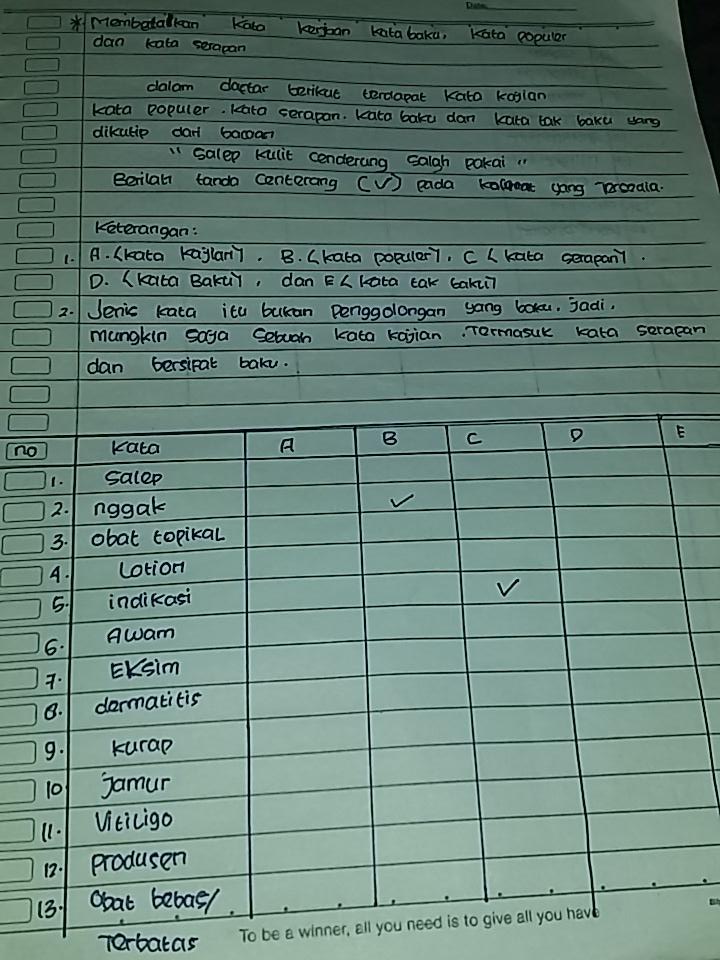 Date
* Membatalkan kata kerjaan kata baku, kata populer
dan kata serapan
dalam daftar berikut terdapat kata kajian
kata populer . kata serapan. kata baku dan kata tak baku yang
dikutip dari bacaan
" Salep kulit cenderung salah pakai "
Berilah tanda centerang (✓) pada yang tersedia.
Keterangan:
1. A. (kata kajian), B. (kata populer), C (kata serapan).
D. (kata Baku), dan E (kata tak baku)
2. Jenis kata itu bukan penggolongan yang baku. Jadi,
mungkin saja sebuah kata kajian .Termasuk kata serapan
dan bersifat baku.
no Kata A B C D E
1. Salep
2. nggak ✓
3. obat topikal
4. Lotion
5. indikasi ✓
6. Awam
7. Eksim
8. dermatitis
9. kurap
10 Jamur
11. Vitiligo
12. produsen
13. Obat bebas/
Terbatas
To be a winner, all you need is to give all you have